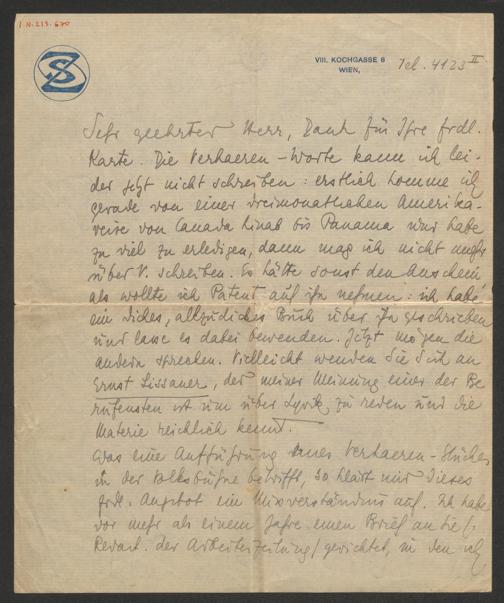 I.N. 213.670
SZ
VIII. KOCHGASSE 8
WIEN,
Tel. 4123 II
Sehr geehrter Herr, Dank für Ihre frdl.
Karte. Die Verhaeren-Worte kann ich lei-
der jetzt nicht schreiben: erstlich komme ich
gerade von einer dreimonatlichen Amerika-
reise von Canada hinab bis Panama und habe
zu viel zu erledigen, dann mag ich nicht mehr
über V. schreiben. Es hätte sonst den Anschein
als wollte ich Patent auf ihn nehmen: ich habe
ein dickes, allzudickes Buch über ihn geschrieben
und lasse es dabei bewenden. Jetzt mögen die
andern sprechen. Vielleicht wenden Sie Sich an
Ernst Lissauer, der meiner Meinung einer der Be
rufensten ist um über Lyrik zu reden und die
Materie reichlich kennt.
Was eine Aufführung eines Verhaeren-Stückes
in der Volksbühne betrifft, so klärt mir dieses
frdl. Angebot ein Missverständnis auf. Ich habe
vor mehr als einem Jahre einen Brief an Sie (
Redact. der Arbeiterzeitung) gerichtet, in dem ich